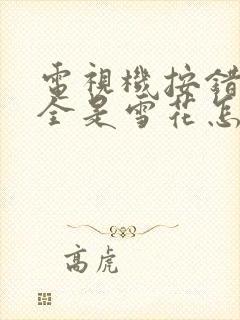 電視機按錯
全是雪花怎
高虎